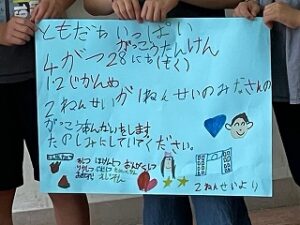 ともだちいっぱい
がっこうたんけん
4がつ28にち(もく)
1・2じかんめ
2ねんせいが1ねんせいのみなさんの
がっこうあんないをします
たのしみにしていてください。
ほけんしつ おんがくしつ
2ねんせいより